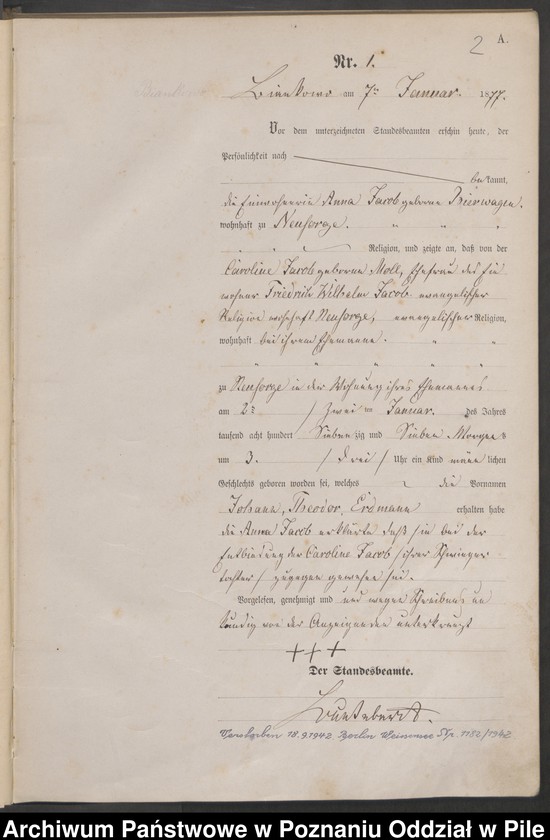 2 A.
Nr. 1.
am 7ten Januar. 1877.
Vor dem unterzeichneten Standesbeamten erschien heute, der
Persönlichkeit nach
bekannt,
die Einwohnerin Anna Jacob geborene Bierwagen.
wohnhaft zu Neusorge.
Religion, und zeigte an, daß von der
Caroline Jacob geborene Moll, Ehefrau des Ein
wohner Friedrich Wilhelm Jacob evangelischer
Religion wohnhaft Neusorge, evangelischer Religion,
wohnhaft bei ihrem Ehemanne.
zu Neusorge in der Wohnung ihres Ehemannes
am 2n / Zwei ten Januar. des Jahres
tausend acht hundert Siebenzig und Sieben Morgens
um 3. / drei / Uhr ein Kind männlichen
Geschlechts geboren worden sei, welches die Vornamen
Johann, Theodor, Erdmann erhalten habe
die Anna Jacob erklärte daß sie bei der
Entbindung der Caroline Jacob / ihrer Schwieger
tochter / zugegen gewesen sei.
Vorgelesen, genehmigt und und wegen Schreibens un
kundig von der Anzeigenden unterkreuzt
+++
Der Standesbeamte.
Verstorben 18.9.1942 Berlin Weissensee Nr. 1182/1942
Archiwum Państwowe w Poznaniu Oddział w Pile